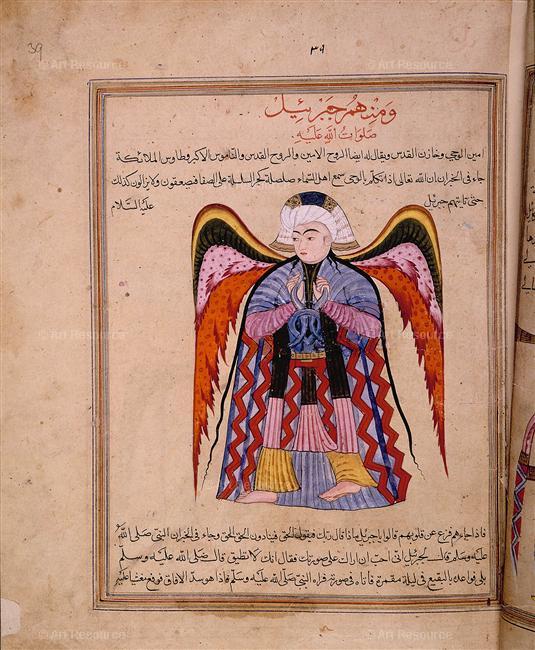 39
٣٩
ومنهم جبرئيل
صلوات الله عليه
امين الوحي وخازن القدس ويقال له ايضا الروح الامين والروح القدس والناموس الاكبر وطاوس الملائكة
جاء في الخبر ان الله تعالى اذا تكلم بالوحي سمع اهل السماء صلصلة كجر السلسلة على الصفا فيصعقون ولا يزالون كذلك
حتى تاتيهم جبرئيل عليه السلام
فاذا جاءهم فزع عن قلوبهم قالوا يا جبرئيل ماذا قال ربك فيقول الحق فينادون الحق الحق وجاء في الخبر ان النبي صلى الله
عليه وسلم قال لجبرئيل اني احب ان اراك على صورتك فقال انك لا تطيق قال صلى الله عليه وسلم
بلى فواعده بالبقيع في ليلة مقمرة فاتاه في صورته فراه النبي صلى الله عليه وسلم فاذا هو سد الافاق فوقع مغشيا عليه
© Art Resource
© Art Resource
© Art Resource
© Art Resource
© Art Resource
© Art Resource
© Art Resource
© Art Resource